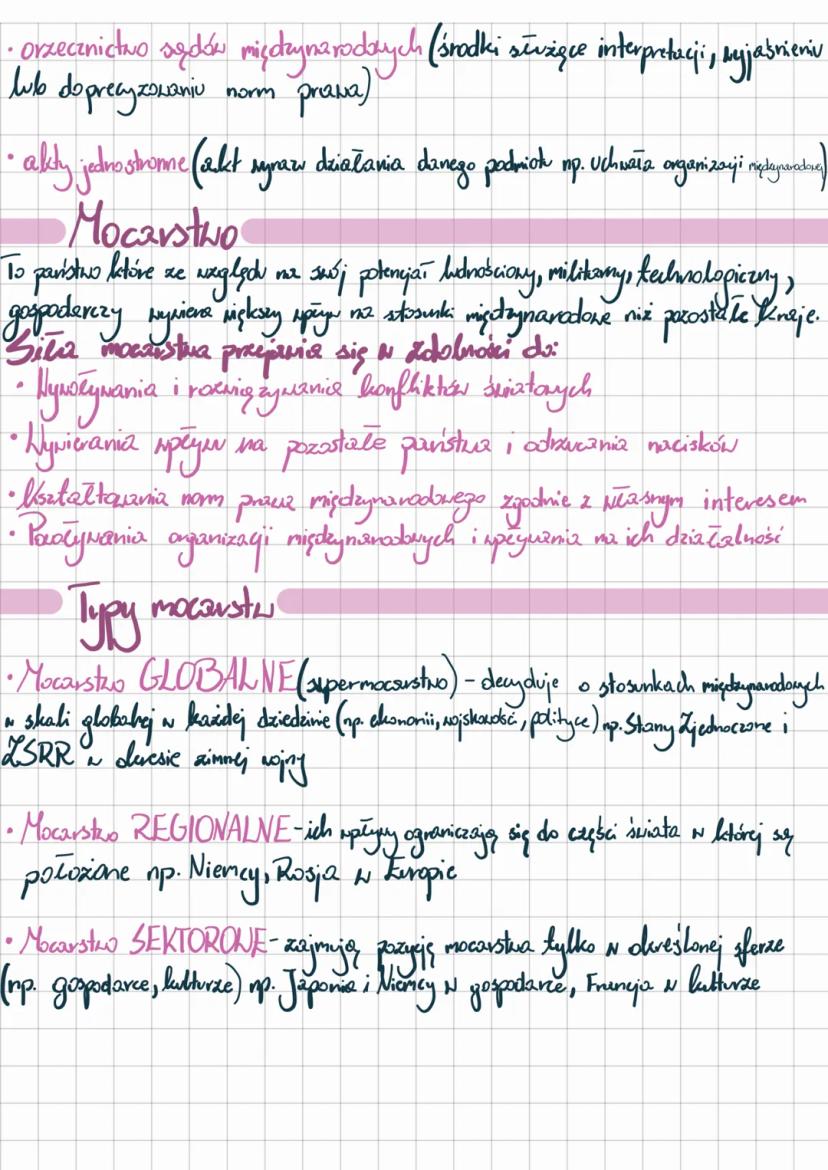 • orzecznictwo sądów międzynarodowych (środki służące interpretacji, wyjaśnieniu
lub doprecyzowaniu norm prawa)
• akty jednostronne (akt wyraw działania danego podmiotu np. uchwała organizacji międzynarodowej)
Mocarstwo
To państwo które ze względu na swój potencjał ludnościowy, militarny, technologiczny,
gospodarczy wywiera większy wpływ na stosunki międzynarodowe niż pozostałe kraje.
Siła mocarstwa przejawia się w zdolności do:
• Wywoływania i rozwiązywania konfliktów światowych
• Wywierania wpływu na pozostałe państwa i odrzucania nacisków
• Kształtowania norm prawa międzynarodowego zgodnie z własnym interesem
• Powoływania organizacji międzynarodowych i wpływania na ich działalność
Typy mocarstw
• Mocarstwo GLOBALNE (supermocarstwo) - decyduje o stosunkach międzynarodowych
w skali globalnej w każdej dziedzinie (np. ekonomii, wojskowość, polityce) np. Stany Zjednoczone i
ZSRR w okresie zimnej wojny
• Mocarstwo REGIONALNE - ich wpływy ograniczają się do części świata w której są
położone np. Niemcy, Rosja w Europie
• Mocarstwo SEKTOROWE - zajmują pozycję mocarstwa tylko w określonej sferze
(np. gospodarce, kulturze) np. Japonia i Niemcy w gospodarce, Francja w kulturze